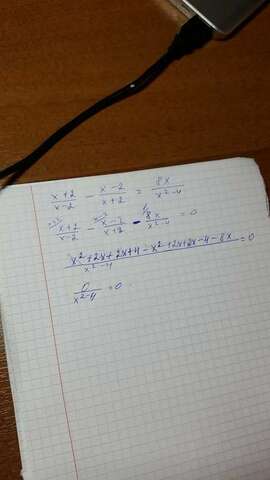 x+2/x-2 - x-2/x+2 = 8x/x²-4
x+2/x-2 - x-2/x+2 - 8x/x²-4 = 0
x²+2x+2x+4-x²+2x+2x-4-8x/x²-4 = 0
0/x²-4 = 0